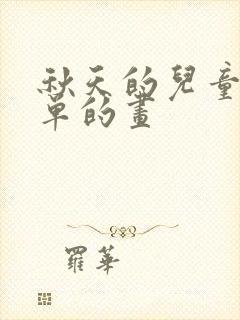 秋天的兒童
草的畫
羅華